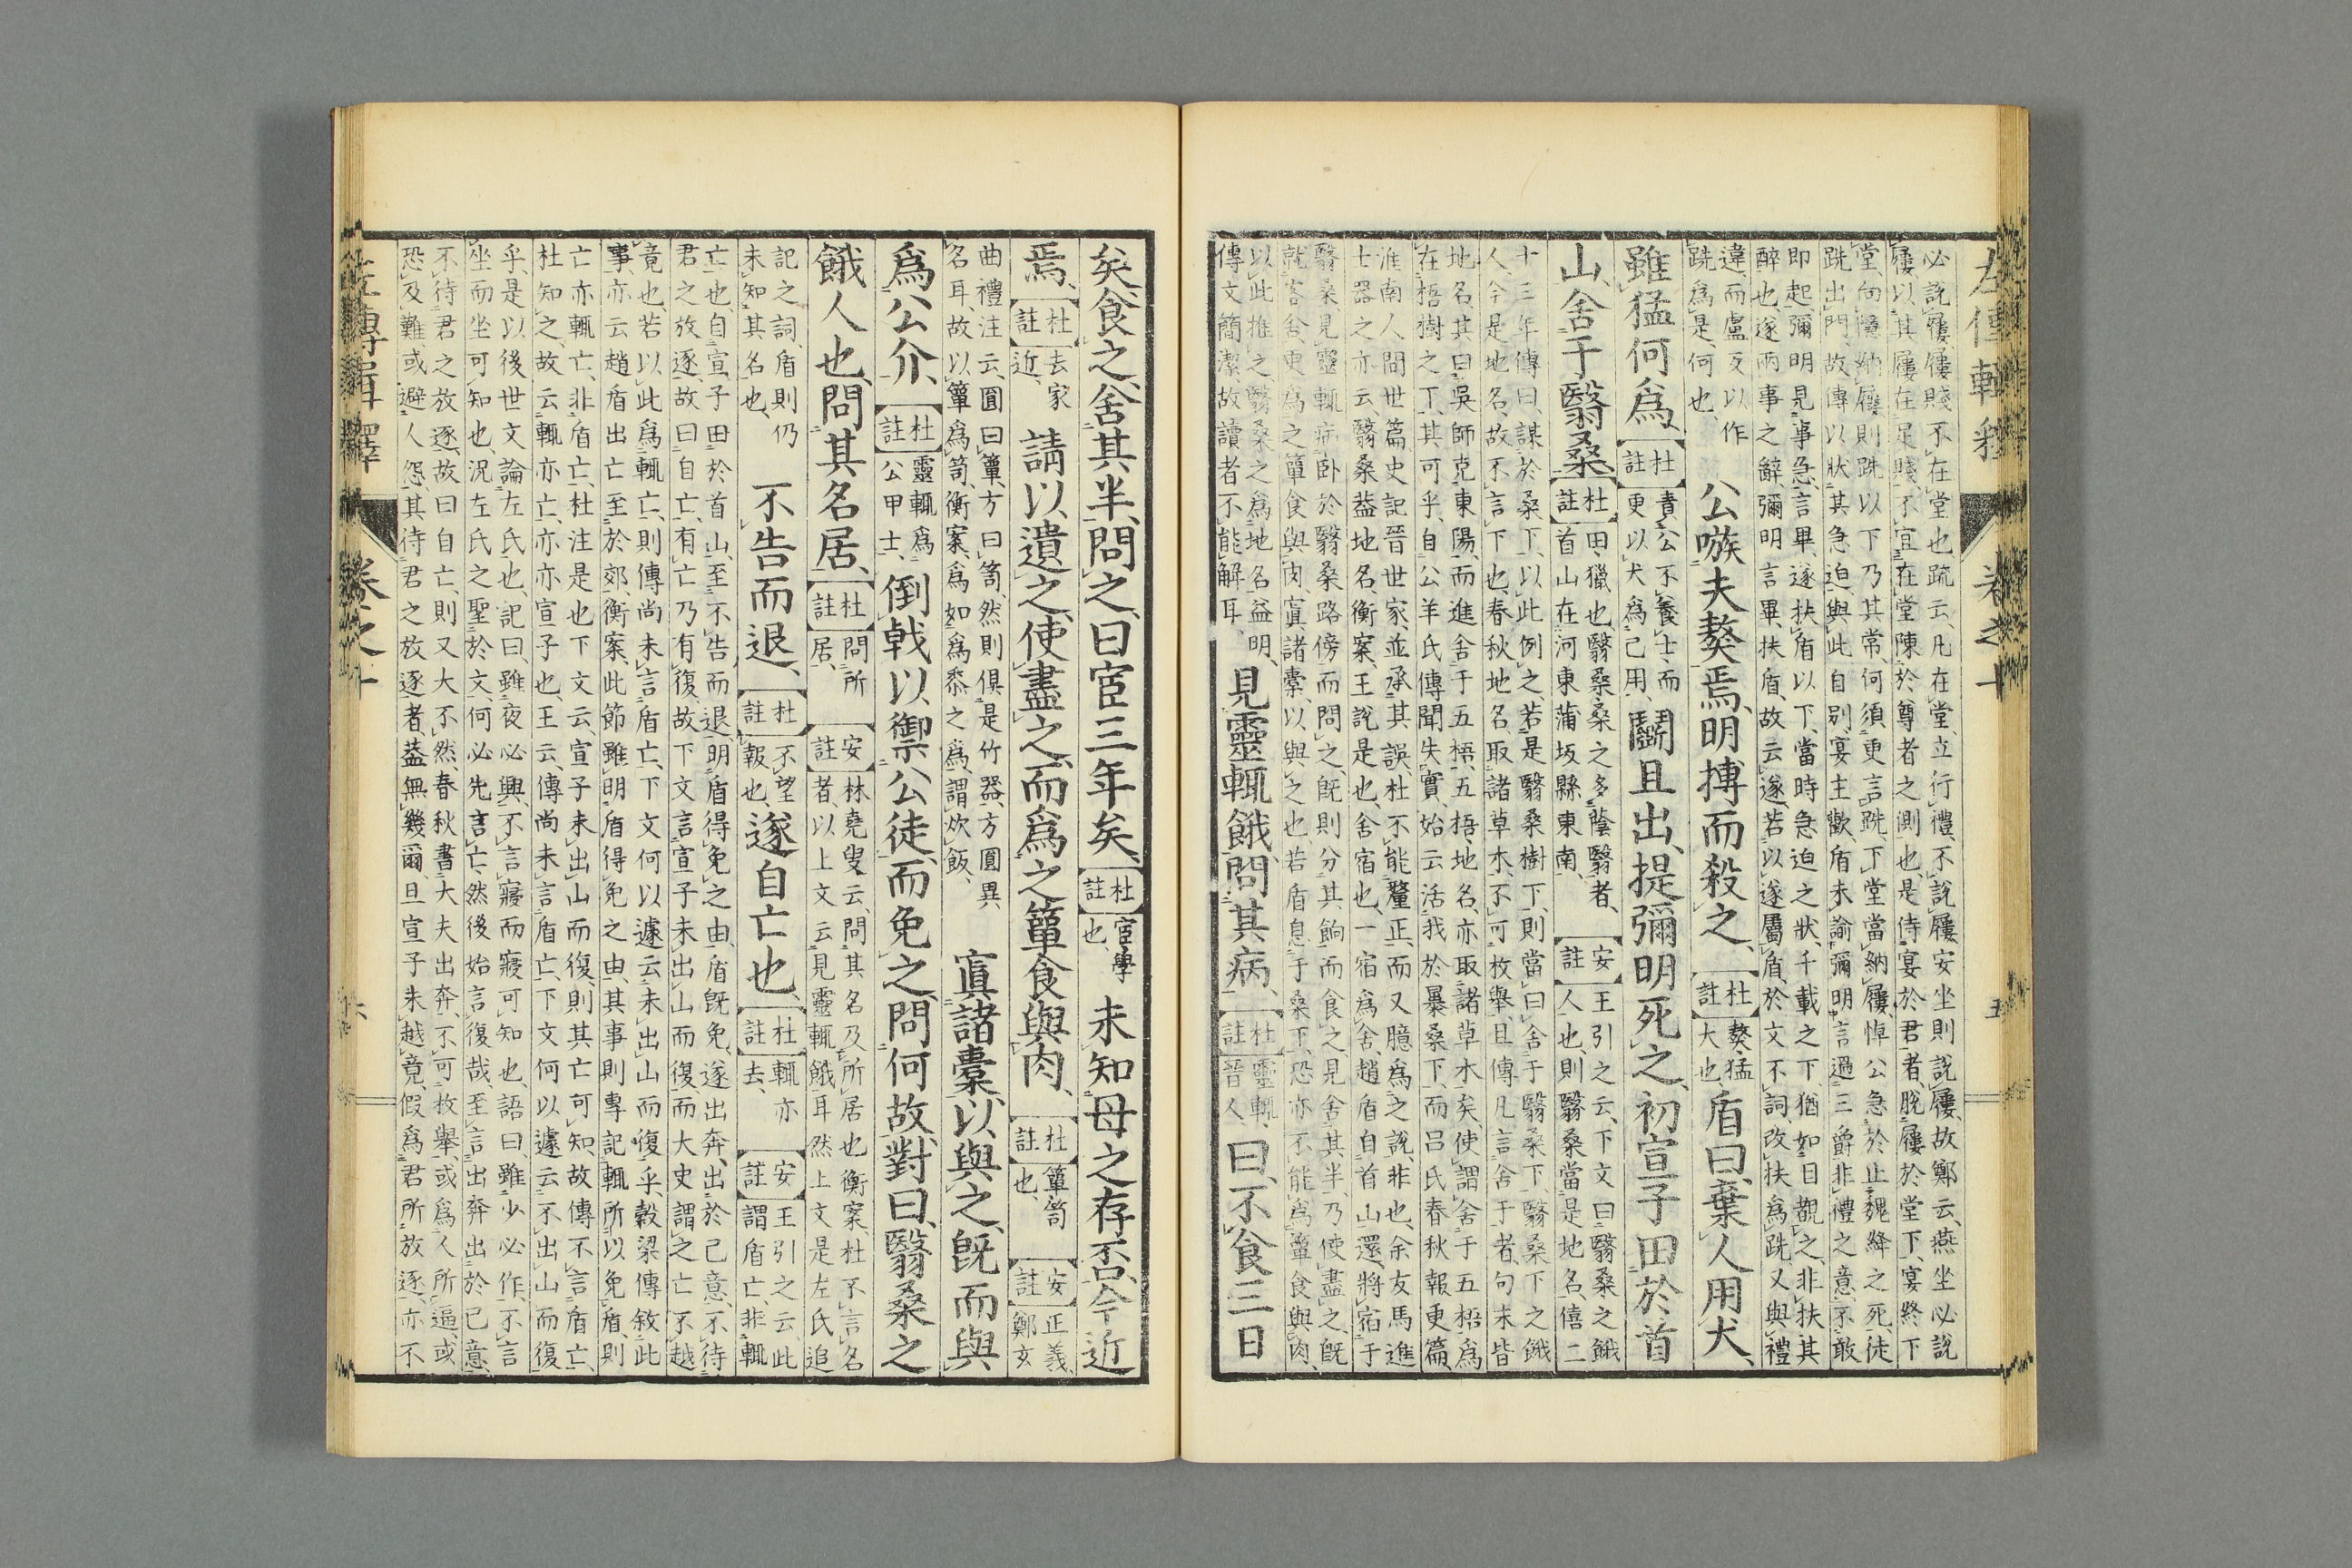 左傳輯釋
卷之十
五
必說屨、屨賤不在堂也、疏云、凡在堂、立行禮、不說屨、安坐則說屨、故鄭云、燕坐必說
屨、以其屨在足賤、不宜在堂陳於尊者之側也、是侍宴於君者、脫屨於堂下、宴終下
堂、向隱納屨、則跣以下乃其常、何須更言跣、下堂當納屨、悼公急於止魏絳之死、徒
跣出門、故傳以狀其急迫、與此自別、宴主歡、盾未諭彌明言過三爵非禮之意、不敢
即起、彌明見事急、言畢、遂扶盾以下、當時急迫之狀、千載之下、猶如目覩之、非扶其
醉也、遂兩事之辭、彌明言畢、扶盾、故云遂、若以遂屬盾、於文不詞、改扶為跣、又與禮
違、而盧反以作
跣為是、何也、
公嗾夫獒焉、明搏而殺之、
杜註
獒、猛
大也、
盾曰、棄人用犬、
雖猛何爲、
杜註
責公不養士、而
更以犬為己用、
鬭且出、提彌明死之、初宣子田於首
山、舍于翳桑、
杜註
田、獵也、翳桑、桑之多蔭翳者、
首山在河東蒲坂縣東南、
安註
王引之云、下文曰、翳桑之餓
人也、則翳桑當是地名、僖二
十三年傳曰、謀於桑下、以此例之、若是翳桑樹下、則當曰舍于翳桑下、翳桑下之餓
人、今是地名、故不言下也、春秋地名、取諸草木、不可枚舉、且傳凡言舍于者、句末皆
地名、其曰吳師克東陽、而進舍于五梧、五梧、地名、亦取諸草木矣、使謂舍于五梧為
在梧樹之下、其可乎、自公羊氏傳聞失實、始云活我於暴桑下、而呂氏春秋報更篇、
淮南人間世篇、史記晉世家、並承其誤、杜不能釐正、而又臆為之說、非也、余友馬進
士器之亦云、翳桑蓋地名、衡案、王說是也、舍宿也、一宿為舍、趙盾自首山還、將宿于
翳桑、見靈輒病臥於翳桑路傍、而問之、旣則分其餉而食之、見舍其半、乃使盡之、旣
就苔舍、更為之簞食與肉、寘諸橐、以與之也、若盾息于桑下、恐亦不能為簞食與肉、
以此推之、翳桑之為地名益明、
傳文簡潔、故讀者不能解耳、
見靈輒餓、問其病、
杜註
靈輒、
晉人、
曰、不食三日
矣、食之、舍其半、問之、曰宦三年矣、
杜註
宦、學
也、
未知母之存否、今近
焉、
杜註
去家
近、
請以遺之、使盡之、而爲之簞食與肉、
杜註
簞、笥
也、
安註
正義、
鄭玄
曲禮注云、圓曰簞、方曰笥、然則俱是竹器、方圓異
名耳、故以簞為笥、衡案、為、如為黍之為、謂炊飯、
寘諸橐、以與之、旣而與
爲公介、
杜註
靈輒為
公甲士、
倒戟以禦公徒、而免之、問何故、對曰、翳桑之
餓人也、問其名居、
杜註
問所
居、
安註
林堯叟云、問其名及所居也、衡案、杜不言名
者、以上文云見靈輒餓耳、然上文是左氏追
記之詞、盾則仍
未知其名也、
不告而退、
杜註
不望
報也、
遂自亡也、
杜註
輒亦
去、
安註
王引之云、此
謂盾亡、非輒
亡也、自宣子田於首山、至不告而退、明盾得免之由、盾旣免、遂出奔、出於己意、不待
君之放逐、故曰自亡、有亡乃有復、故下文言宣子未出山而復、而大史謂之亡不越
竟也、若以此為輒亡、則傳尚未言盾亡、下文何以遽云未出山而復乎、穀梁傳敘此
事、亦云趙盾出亡至於郊、衡案、此節雖明盾得免之由、其事則專記輒所以免盾、則
亡亦輒亡、非盾亡、杜注是也、下文云、宣子未出山而復、則其亡可知、故傳不言盾亡、
杜知之、故云輒亦亡、亦亦宣子也、王云、傳尚未言盾亡、下文何以遽云不出山而復
乎、是以後世文論左氏也、記曰、雖夜必興、不言寢而寢可知也、語曰、雖少必作、不言
坐而坐可知也、況左氏之聖於文、何必先言亡、然後始言復哉、至言出奔出於己意
不待君之放逐、故曰自亡、則又大不然、春秋書大夫出奔、不可枚舉、或為人所逼、或
恐及難、或避人怨、其待君之放逐者、蓋無幾爾、且宣子未越竟、假為君所放逐、亦不
左傳輯釋
卷之十
六